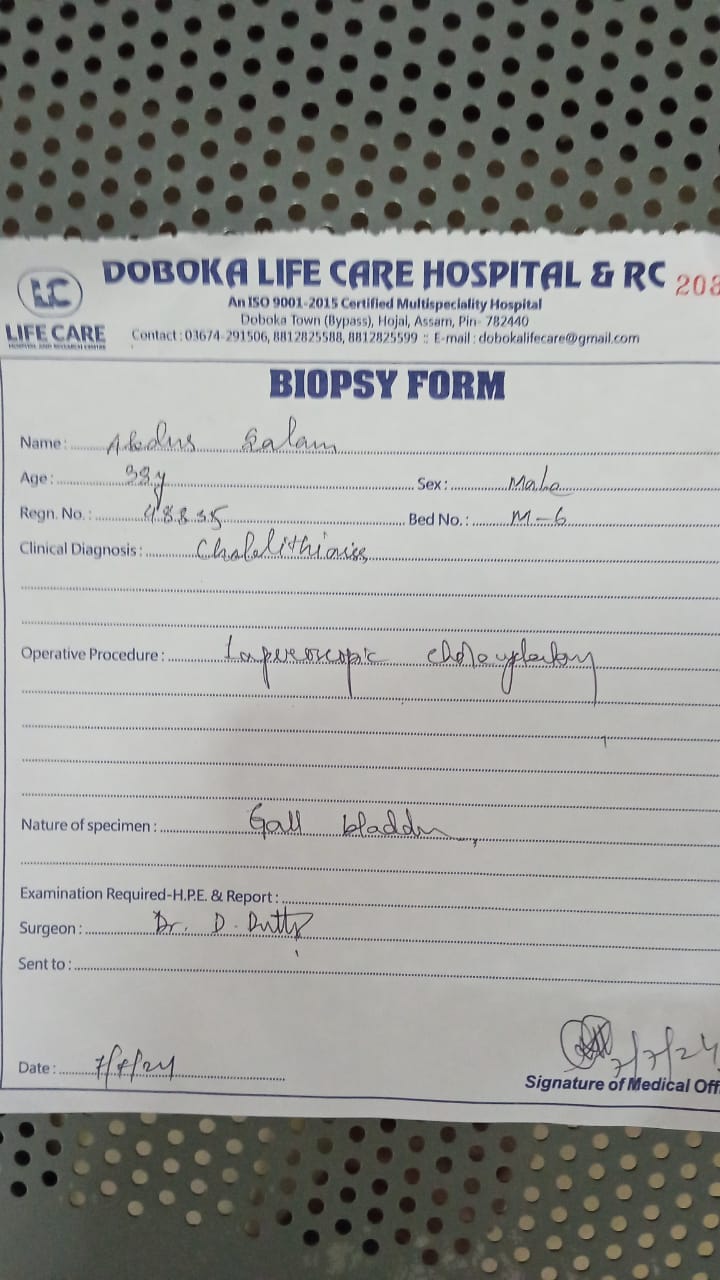 DOBOKA LIFE CARE HOSPITAL & RC 208
LC
LIFE CARE
HOSPITAL AND RESEARCH CENTRE
An ISO 9001-2015 Certified Multispeciality Hospital
Doboka Town (Bypass), Hojai, Assam, Pin- 782440
Contact : 03674-291506, 8812825588, 8812825599 :: E-mail : dobokalifecare@gmail.com
BIOPSY FORM
Name : Abdus Salam
Age : 33y Sex : Male
Regn. No. : 48835 Bed No. : M-6
Clinical Diagnosis : Cholelithiasis
Operative Procedure : Laparoscopic
Nature of specimen : Gall bladder
Examination Required-H.P.E. & Report :
Surgeon : Dr. D. Dutta
Sent to :
7/7/24
Date : 7/7/24
Signature of Medical Off